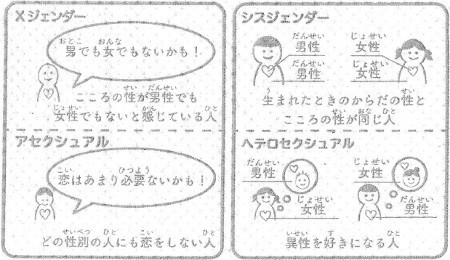 Xジェンダー
男でも女でもないかも！
こころの性が男性でも
女性でもないと感じている人
アセクシュアル
恋はあまり必要ないかも！
どの性別の人にも恋をしない人
シスジェンダー
男性 女性
男性 女性
生まれたときのからだの性と
こころの性が同じ人
ヘテロセクシュアル
男性 女性
女性 男性
異性を好きになる人